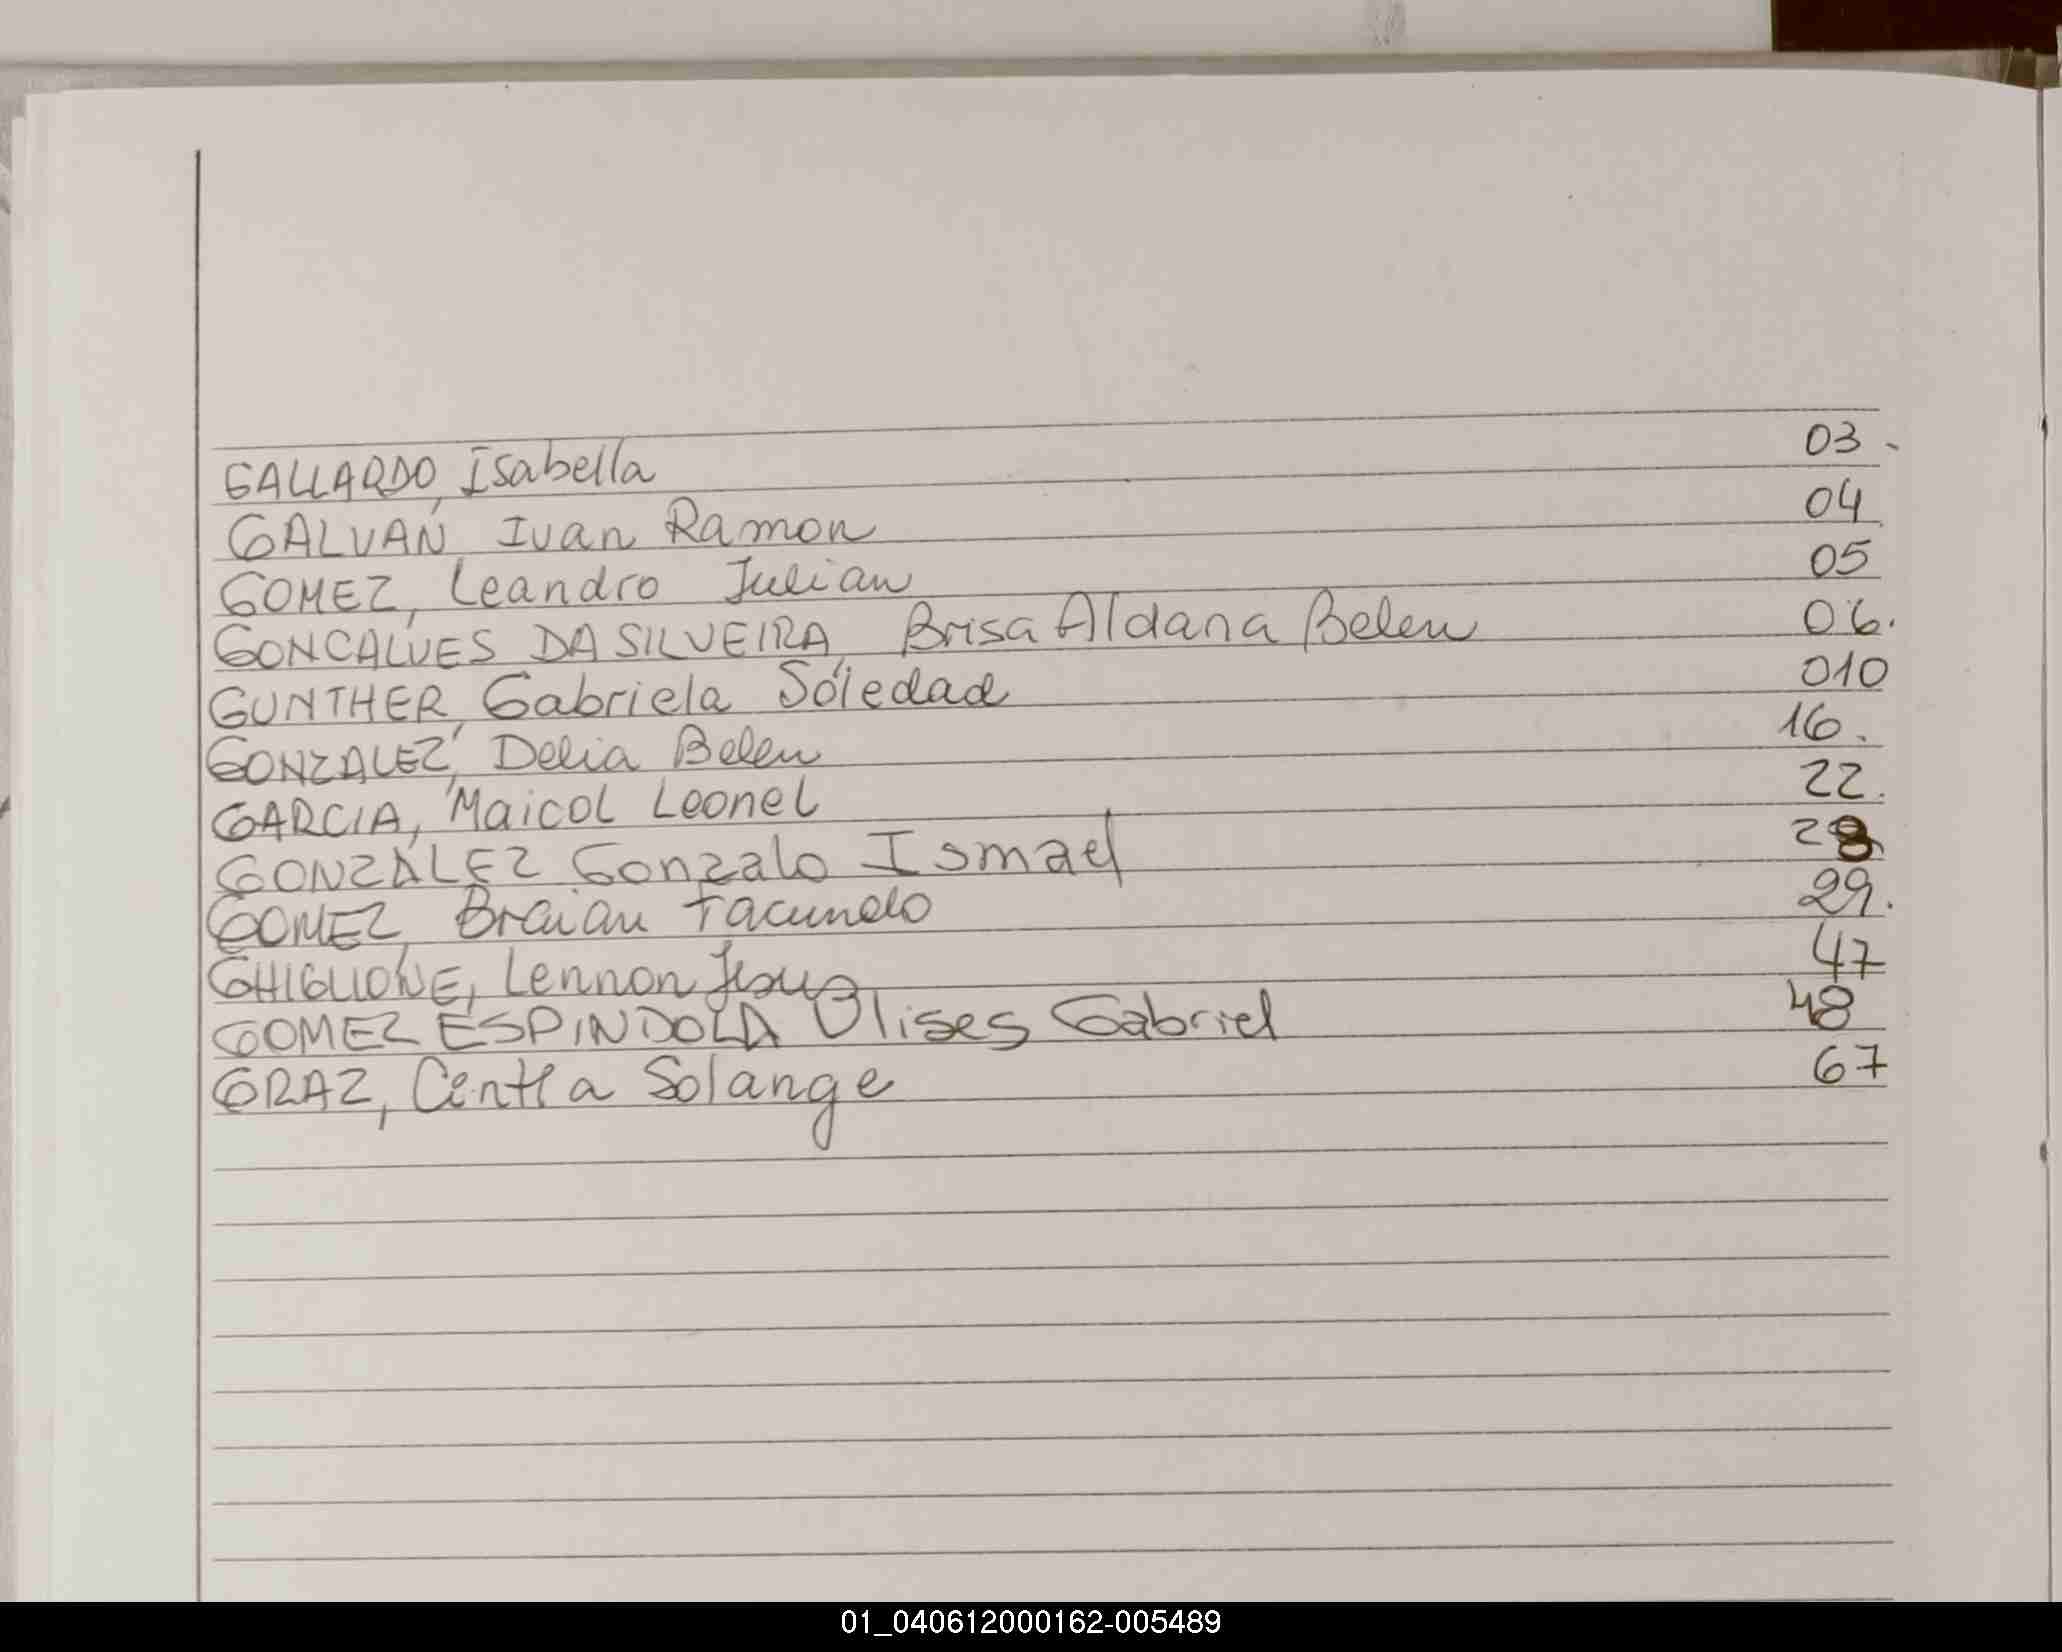 GALLARDO, Isabella 03-
GALVAN, Ivan Ramon 04
GOMEZ, Leandro Julian 05
GONCALVES DA SILVEIRA, Brisa Aldana Belen 06.
GUNTHER, Gabriela Soledad 010
GONZALEZ, Delia Belen 16.
GARCIA, Maicol Leonel 22.
GONZÁLEZ Gonzalo Ismael 28
GOMEZ, Braian Facundo 29.
GHIGLIONE, Lennon Jesus 47
GOMEZ ESPINDOLA Ulises Gabriel 48
GRAZ, Solange 67
01_040612000162-005489